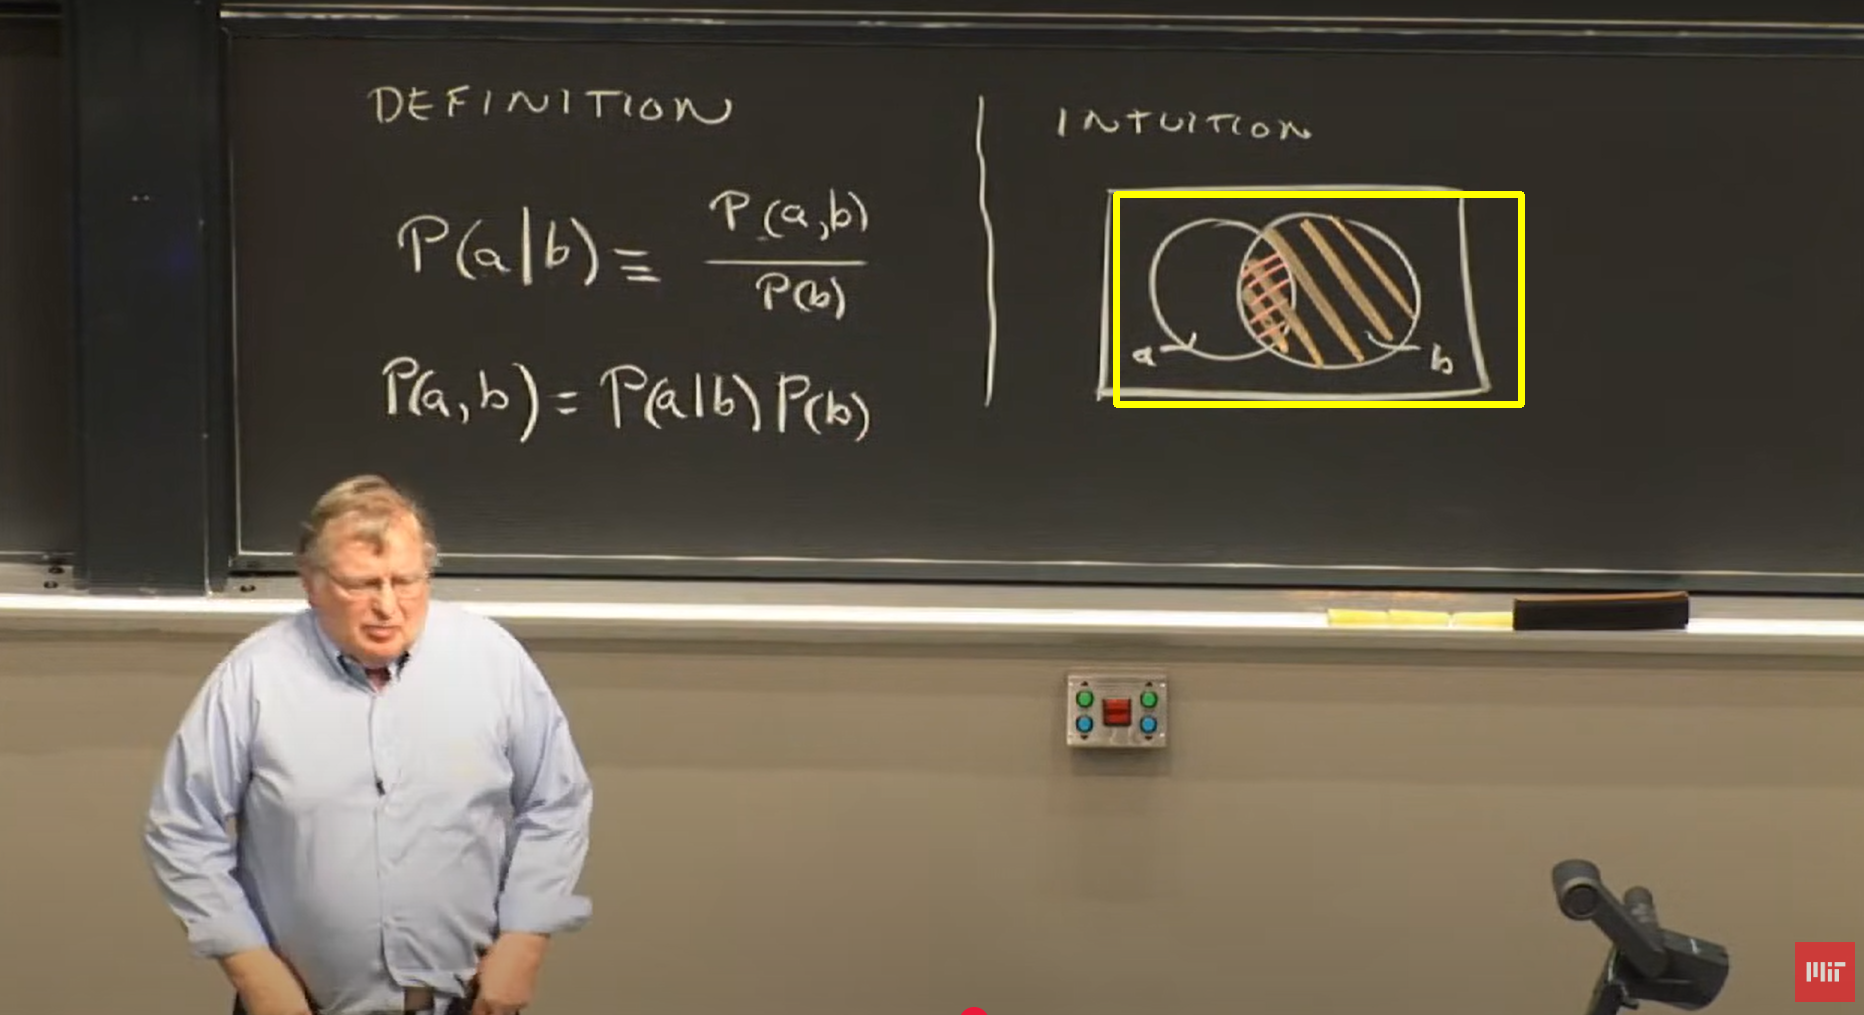 DEFINITION
P(a|b) ≡ P(a,b)
P(b)
P(a,b) = P(a|b) P(b)
INTUITION
a
b
MIT